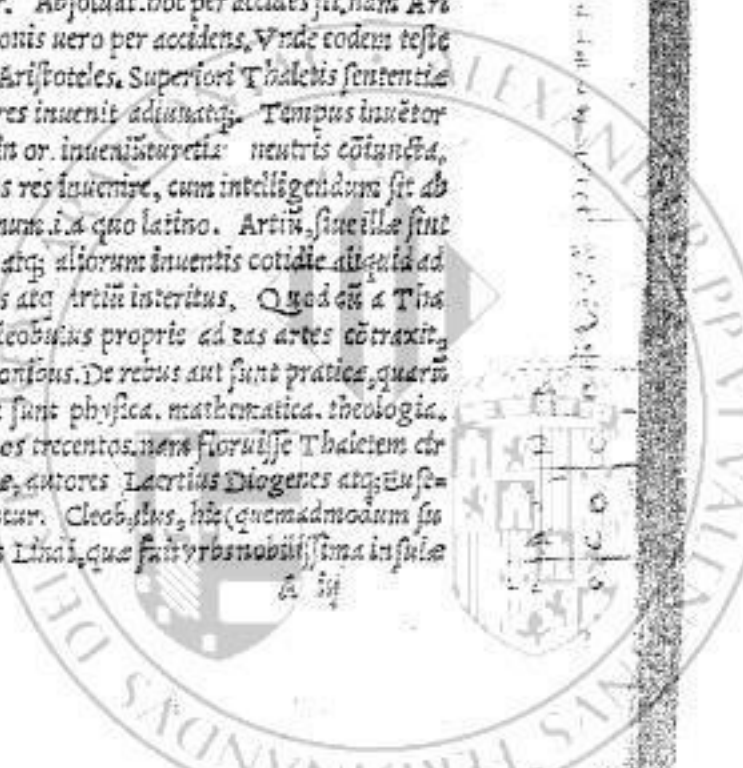 Absoluat. hoc per accidēs fit, nam Ari
onis uero per accidens. Vnde eodem teste
Aristoteles. Superiori Thaletis sententiæ
res inuenit adiuuatq;. Tempus inuētor
in or. inueniūtur neutris cōiuncta,
s res inuenire, cum intelligendum sit ab
num .i. a quo latino. Artiū, siue illæ sint
atq; aliorum inuentis cotidie aliquid ad
s atq artiū interitus. Quod cū a Tha
leobulus propriè ad eas artes cōtraxit,
onibus. De rebus aut sunt pratica, quarū
sunt physica. mathematica. theologia.
os trecentos. nam floruisse Thaletem cir
e, autores Laertius Diogenes atq; Euse=
tur. Cleobulus, hic (quemadmodum su
s Lindi, quæ fuit vrbs nobilissima insulæ
A iij
ALEXAN PP VI VALEN
NVS FERDINANDVS DEI